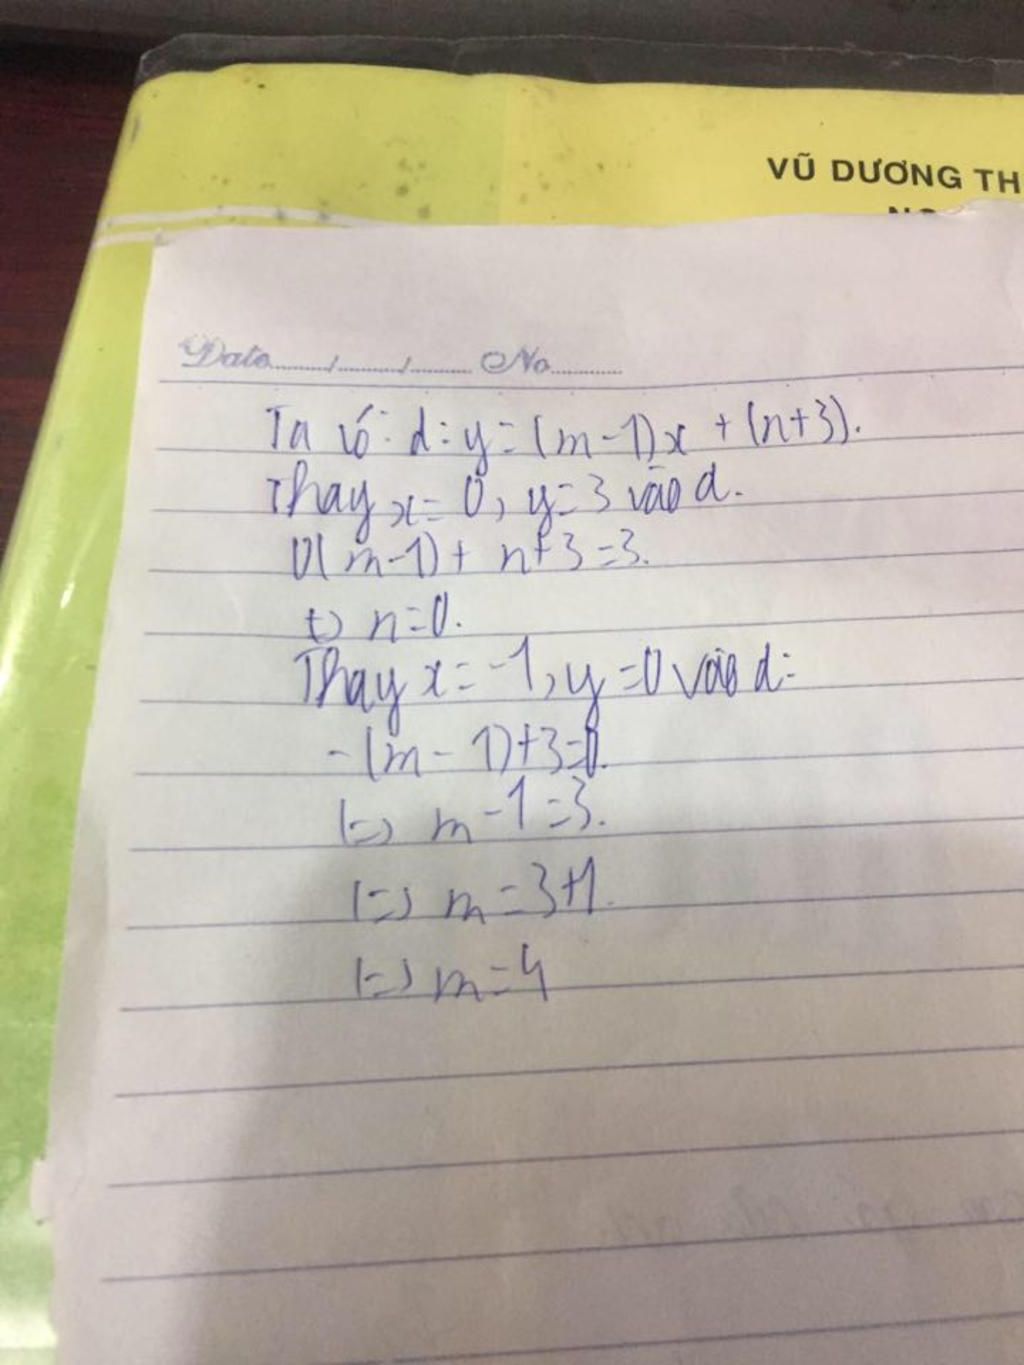 VŨ DƯƠNG TH
Date......./......./....... No........
Ta có: d: y = (m-1)x + (n+3).
Thay x = 0, y = 3 vào d.
0(m-1) + n+3 = 3.
<=> n = 0.
Thay x = -1, y = 0 vào d:
-(m - 1)+3=0.
<=> m - 1 = 3.
<=> m = 3+1.
<=> m = 4